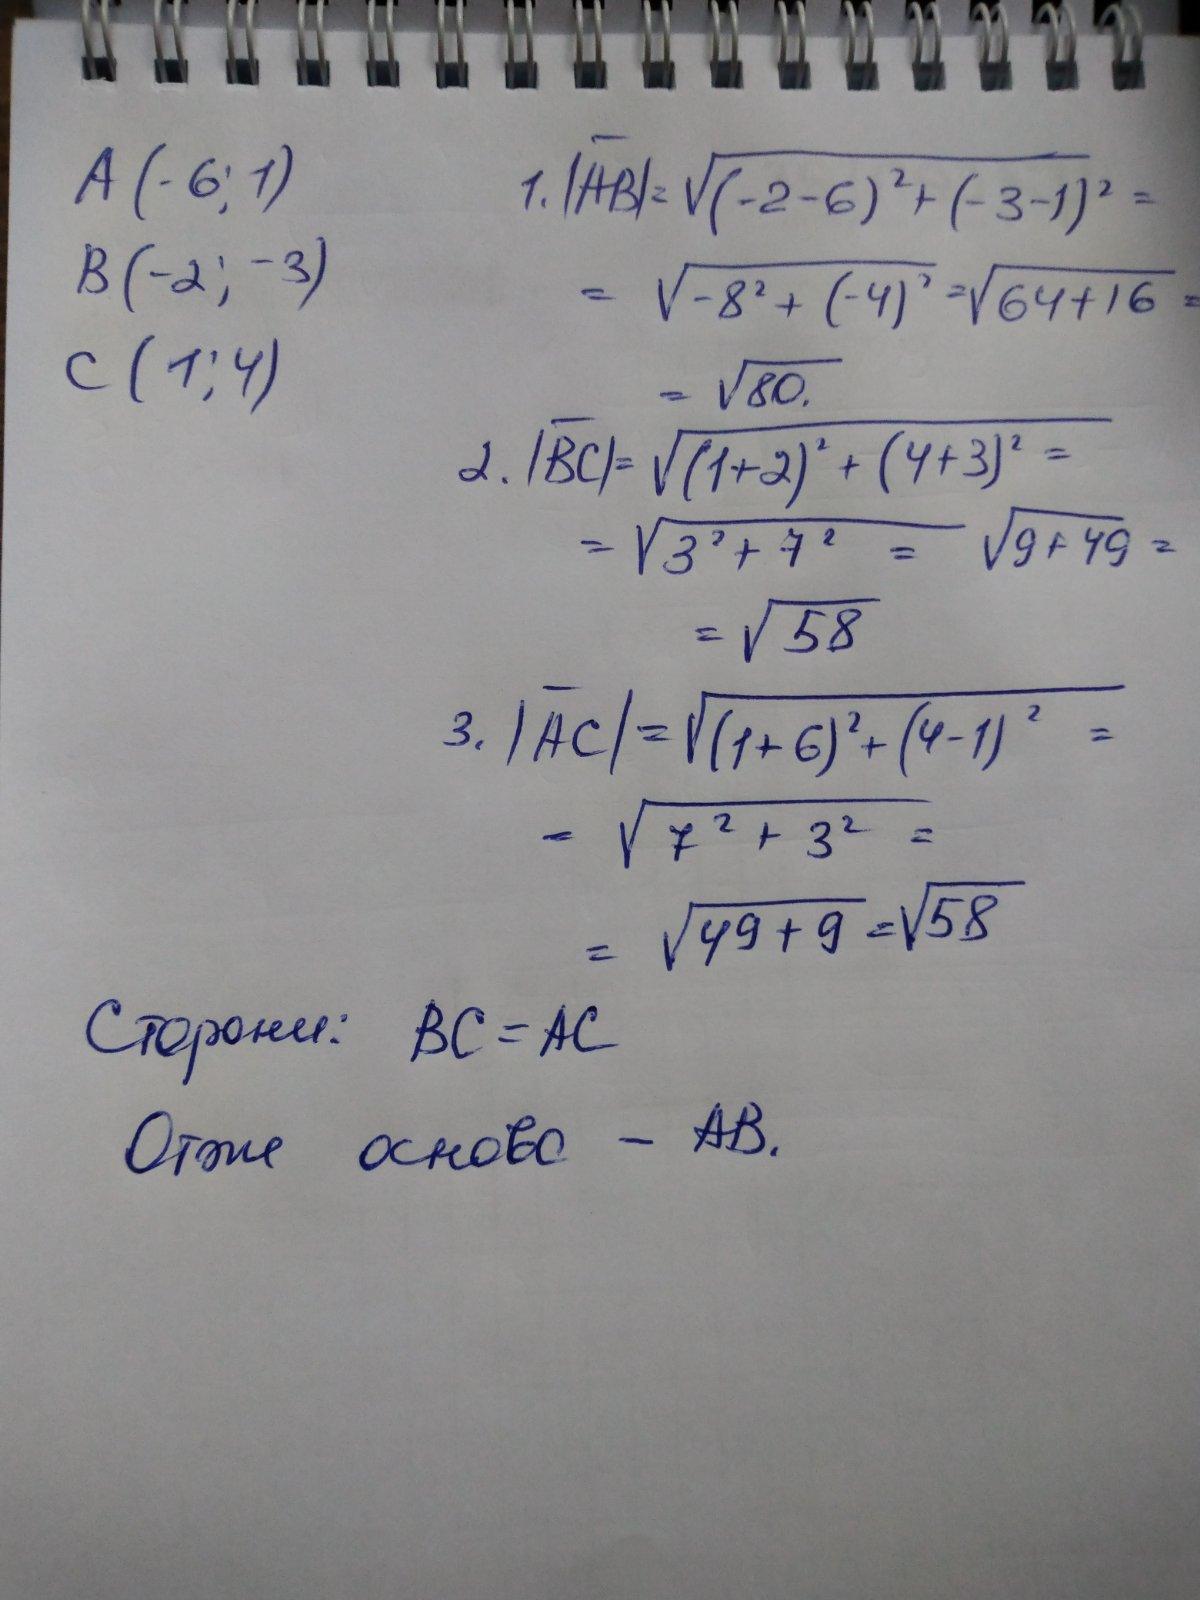 A (-6; 1)
B (-2; -3)
C (1; 4)
1. |A̅B̅| = √(-2-6)² + (-3-1)² =
= √-8² + (-4)² = √64+16 =
= √80.
2. |B̅C̅| = √(1+2)² + (4+3)² =
= √3² + 7² = √9+49 =
= √58
3. |A̅C̅| = √(1+6)² + (4-1)² =
= √7² + 3² =
= √49+9 = √58
Сторони: BC = AC
Отже основа – AB.